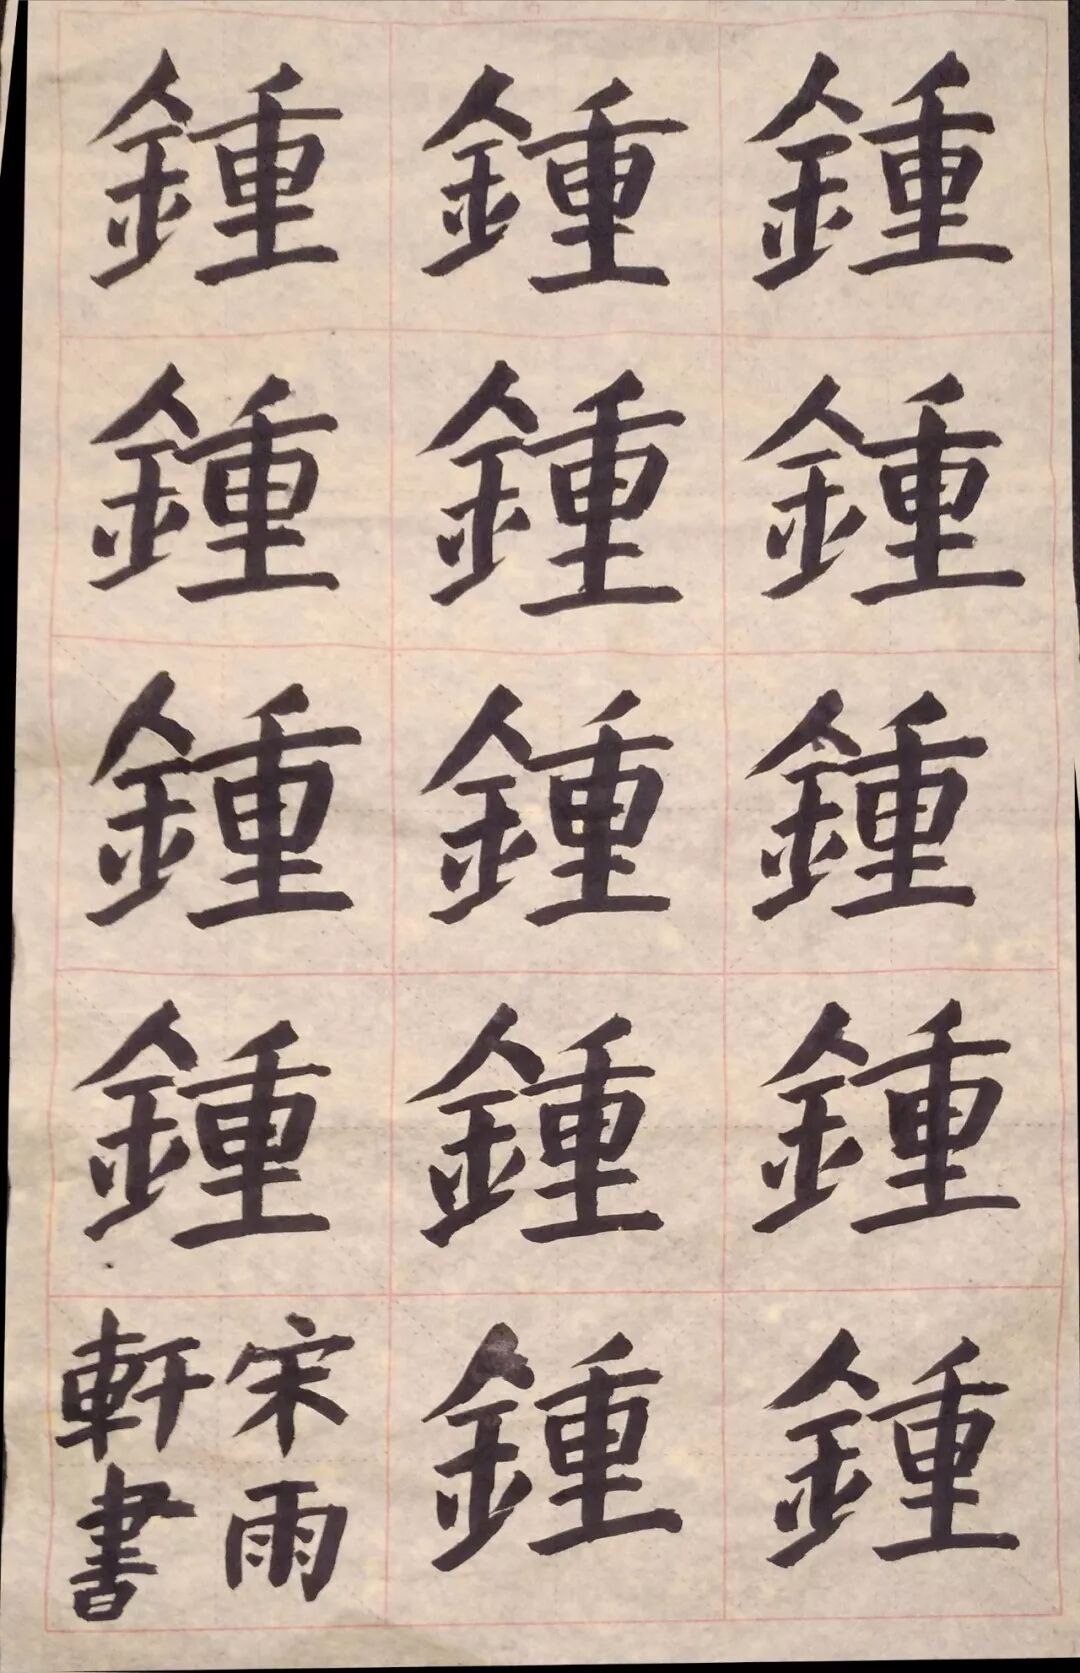 鍾鍾鍾鍾鍾
鍾鍾鍾鍾鍾
鍾鍾鍾鍾
宋雨
軒書